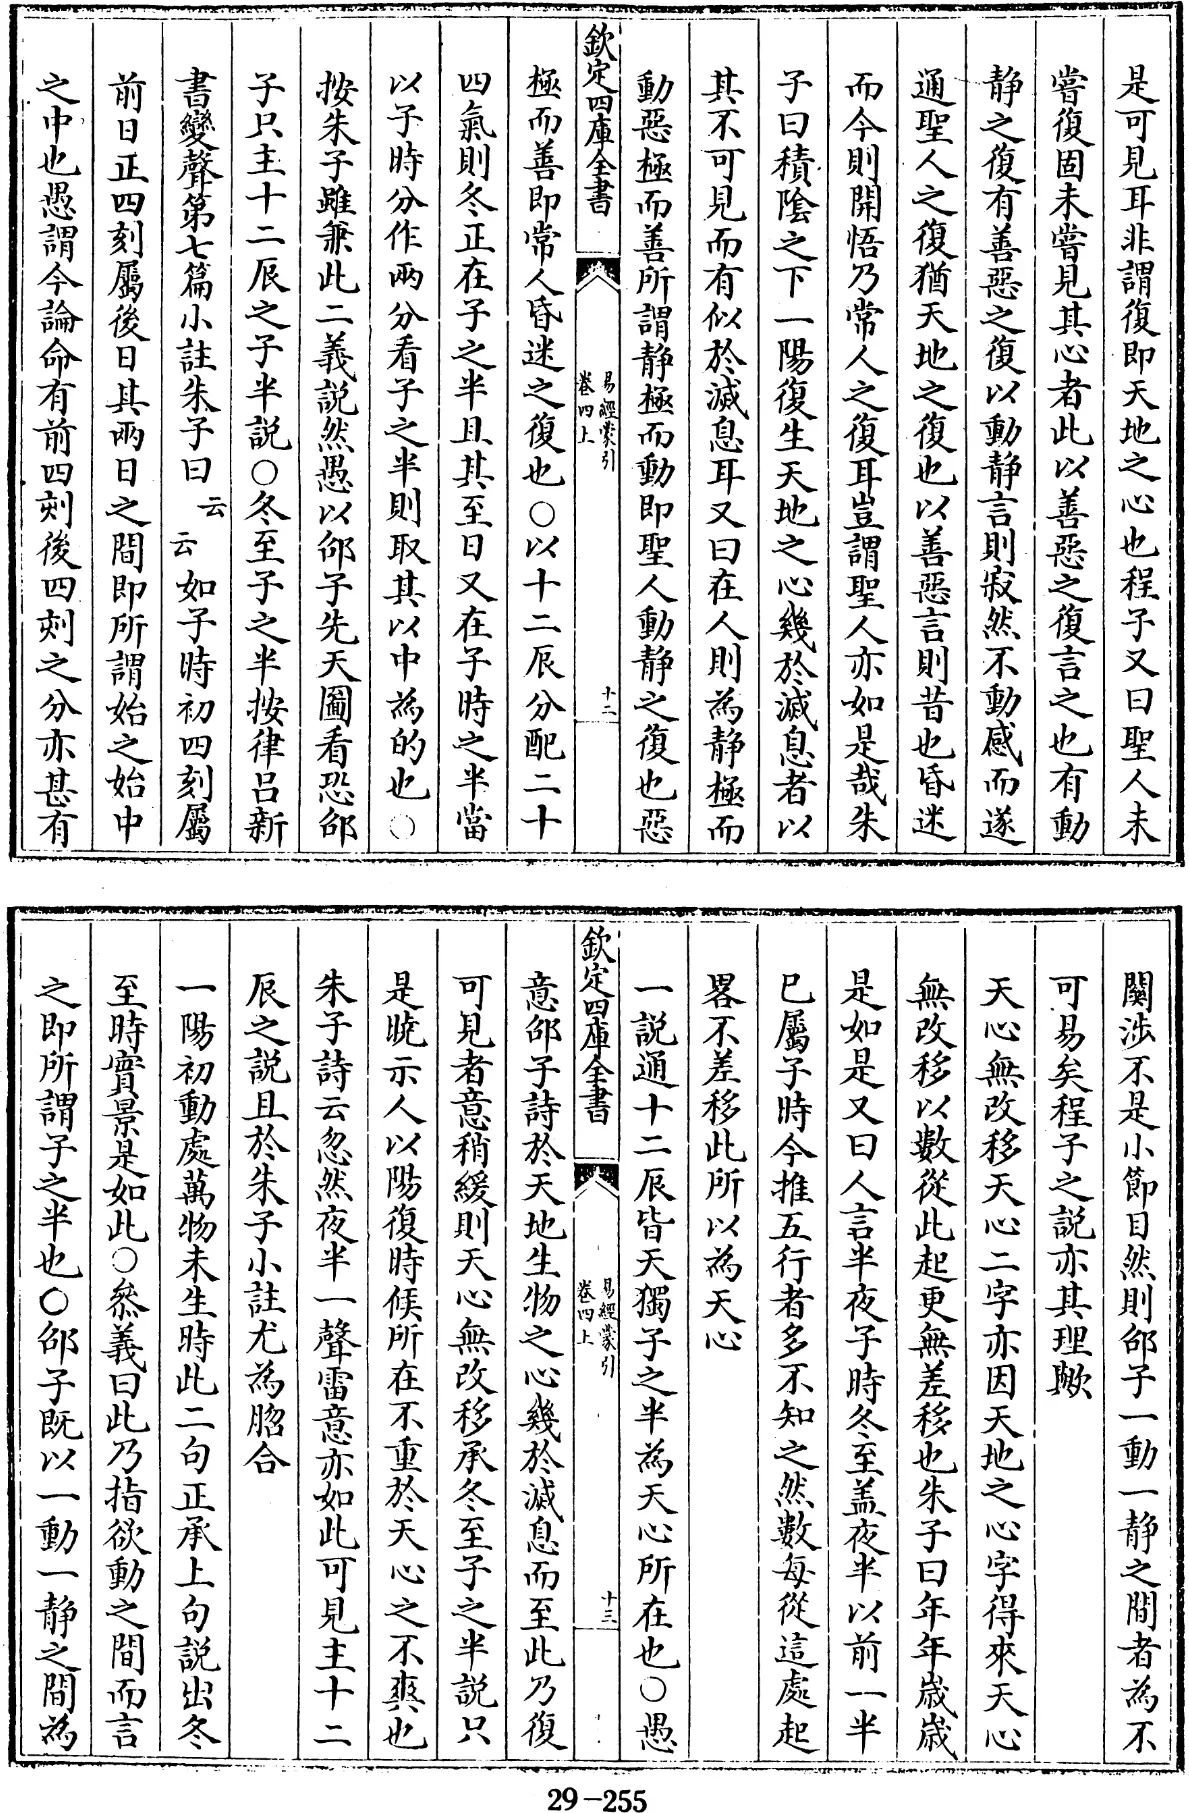 是可見耳非謂復即天地之心也程子又曰聖人未
嘗復固未嘗見其心者此以善惡之復言之也有動
静之復有善惡之復以動静言則寂然不動感而遂
通聖人之復猶天地之復也以善惡言則昔也昏迷
而今則開悟乃常人之復耳豈謂聖人亦如是哉朱
子曰積陰之下一陽復生天地之心幾於滅息者以
其不可見而有似於滅息耳又曰在人則為静極而
動惡極而善所謂静極而動即聖人動静之復也惡
欽定四庫全書
易經蒙引
卷四上
十二
極而善即常人昏迷之復也○以十二辰分配二十
四氣則冬正在子之半且其至日又在子時之半當
以子時分作兩分看子之半則取其以中為的也○
按朱子雖兼此二義說然愚以邵子先天圖看恐邵
子只主十二辰之子半說○冬至子之半按律呂新
書變聲第七篇小註朱子曰云云如子時初四刻屬
前日正四刻屬後日其兩日之間即所謂始之始中
之中也愚謂今論命有前四刻後四刻之分亦甚有
關涉不是小節目然則邵子一動一静之間者為不
可易矣程子之說亦其理歟
天心無改移天心二字亦因天地之心字得來天心
無改移以數從此起更無差移也朱子曰年年歲歲
是如是又曰人言半夜子時冬至蓋夜半以前一半
已屬子時今推五行者多不知之然數每從這處起
畧不差移此所以為天心
一說通十二辰皆天獨子之半為天心所在也○愚
欽定四庫全書
易經蒙引
卷四上
十三
意邵子詩於天地生物之心幾於滅息而至此乃復
可見者意稍緩則天心無改移承冬至子之半說只
是曉示人以陽復時候所在不重於天心之不爽也
朱子詩云忽然夜半一聲雷意亦如此可見主十二
辰之說且於朱子小註尤為脗合
一陽初動處萬物未生時此二句正承上句說出冬
至時實景是如此○叅義曰此乃指欲動之間而言
之即所謂子之半也○邵子既以一動一静之間為
29-255